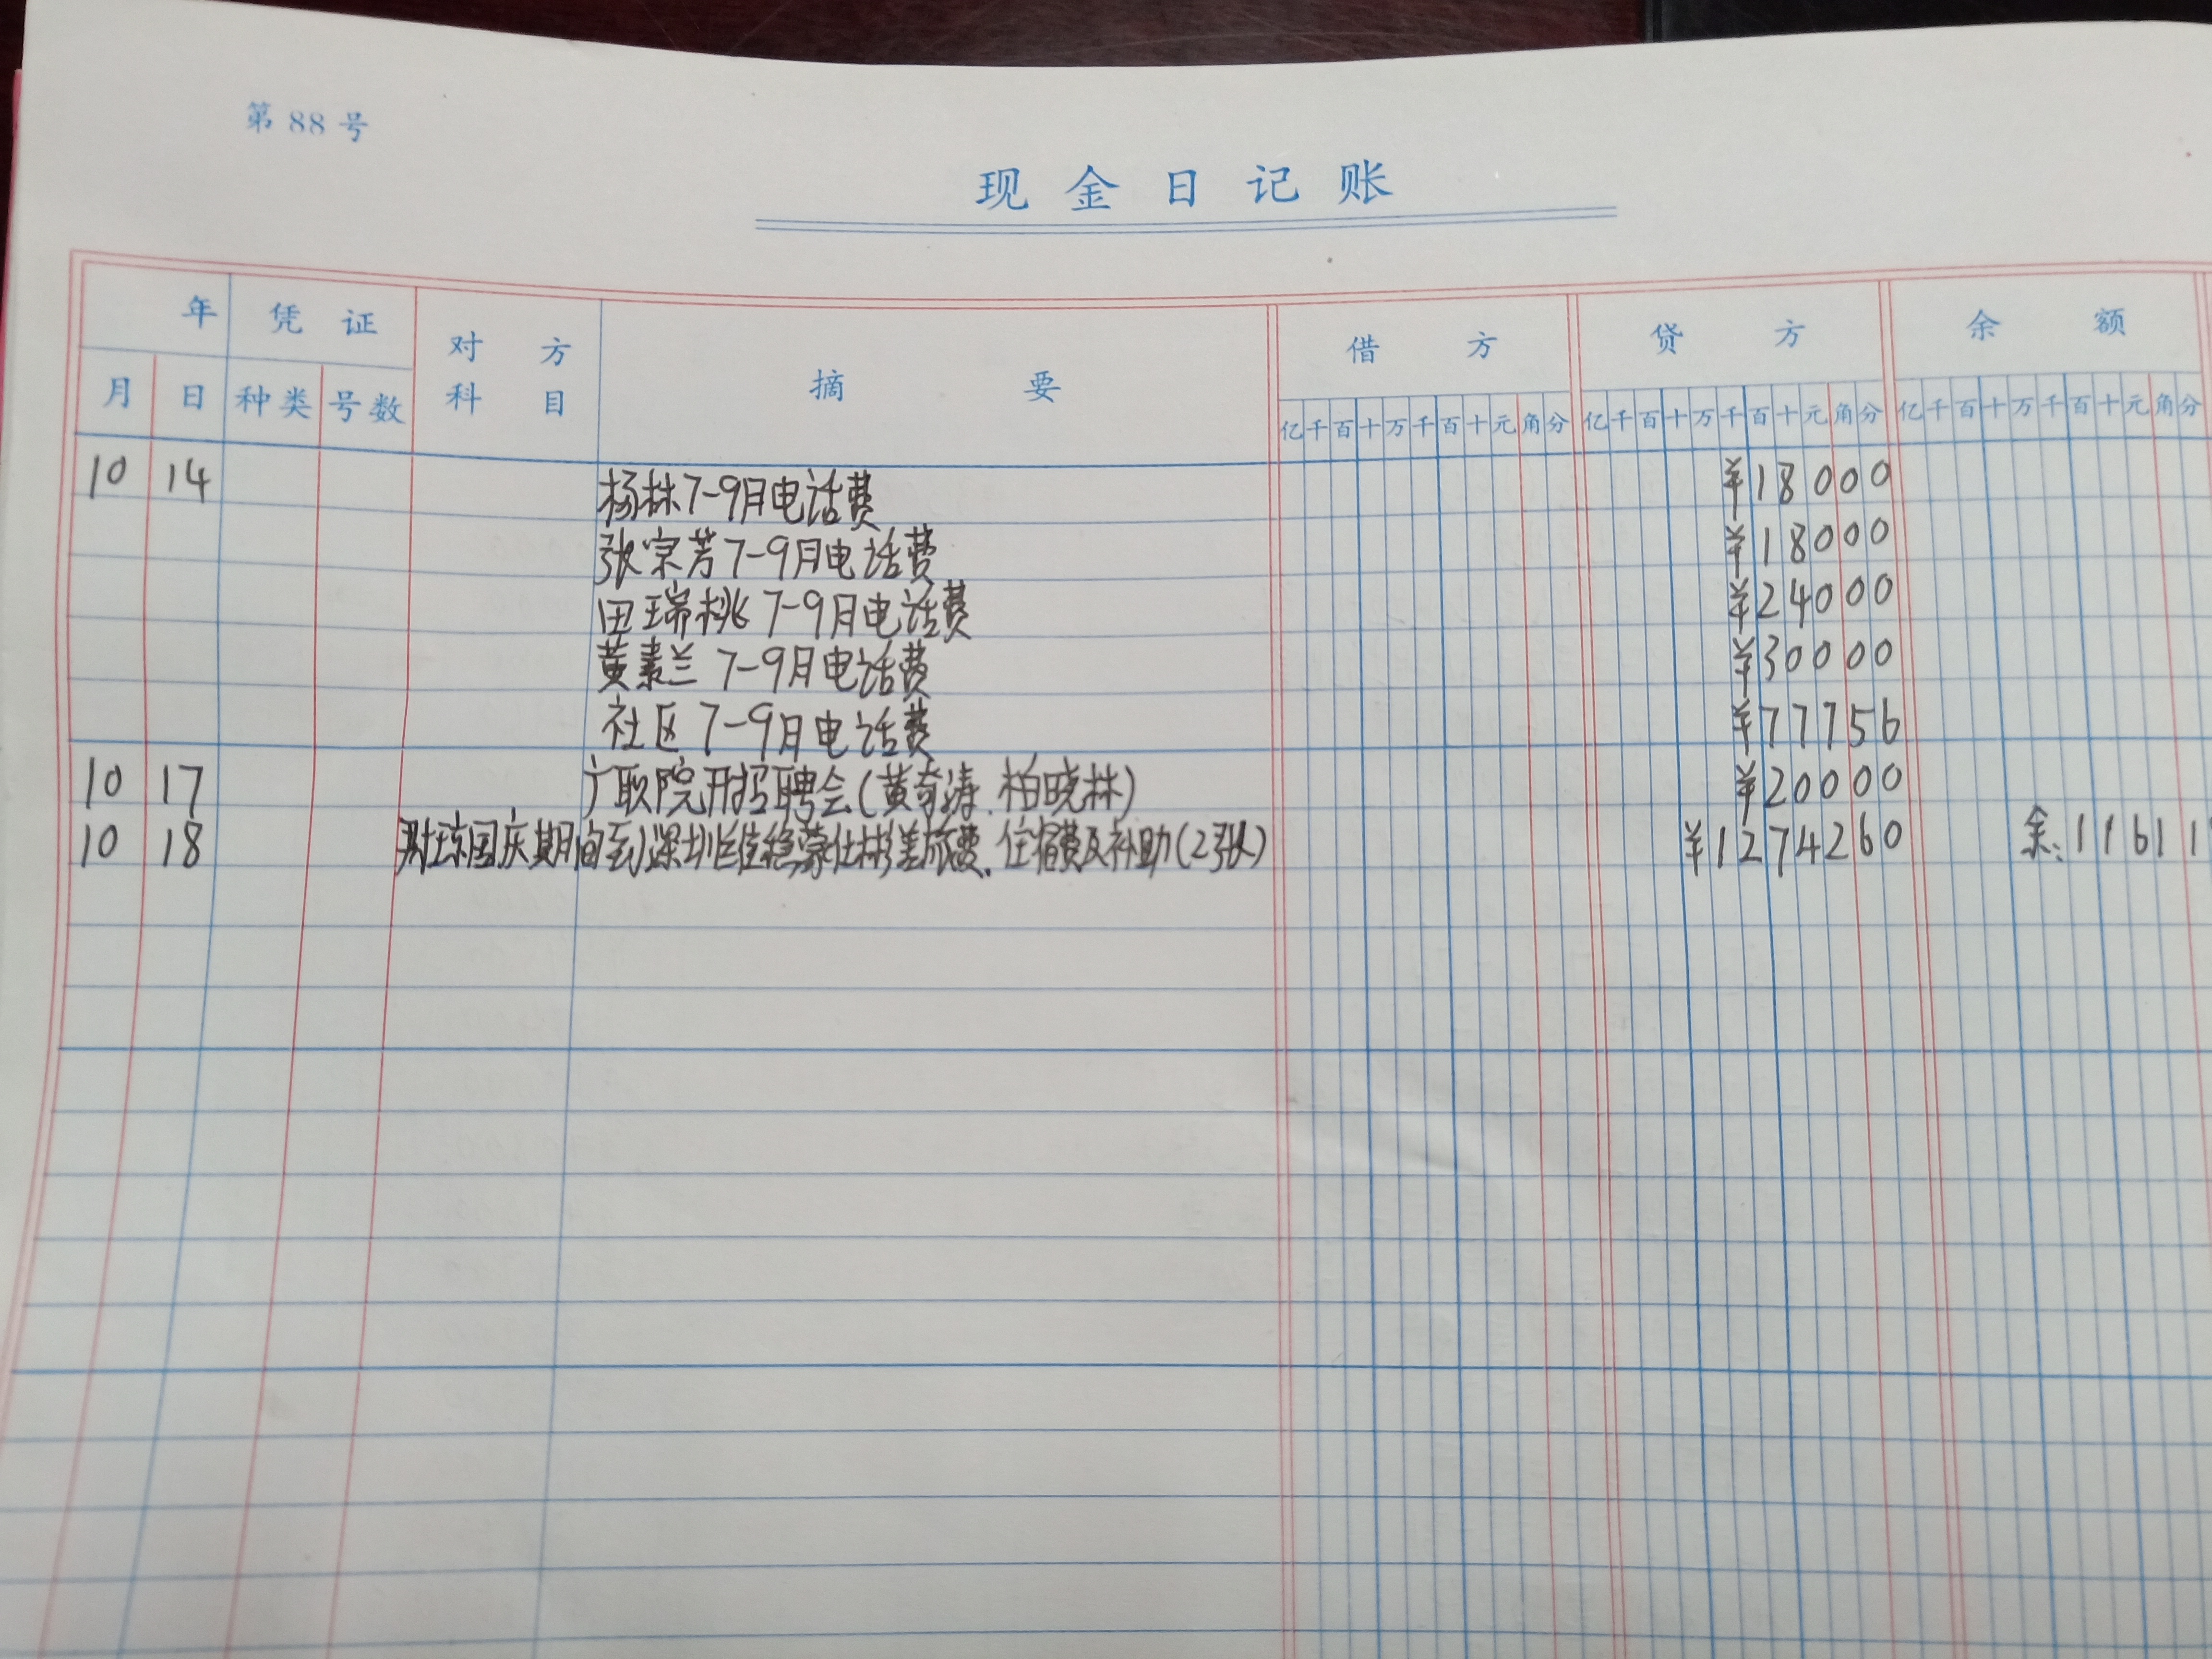 第 88 号
现金日记账
年 凭证 对方科目 摘要 借方 贷方 余额
月 日 种类 号数 亿千百十万千百十元角分 亿千百十万千百十元角分 亿千百十万千百十元角分
10 14 杨林7-9月电话费 ¥18000
张宗芳7-9月电话费 ¥18000
田瑞桃7-9月电话费 ¥24000
黄素兰7-9月电话费 ¥30000
社区7-9月电话费 ¥77756
10 17 广职院开招聘会(黄奇涛、柏晓林) ¥20000
10 18 琼国庆期间到深圳维稳蒙仕彬差旅费、住宿费及补助(2张) ¥1274260 余:11611